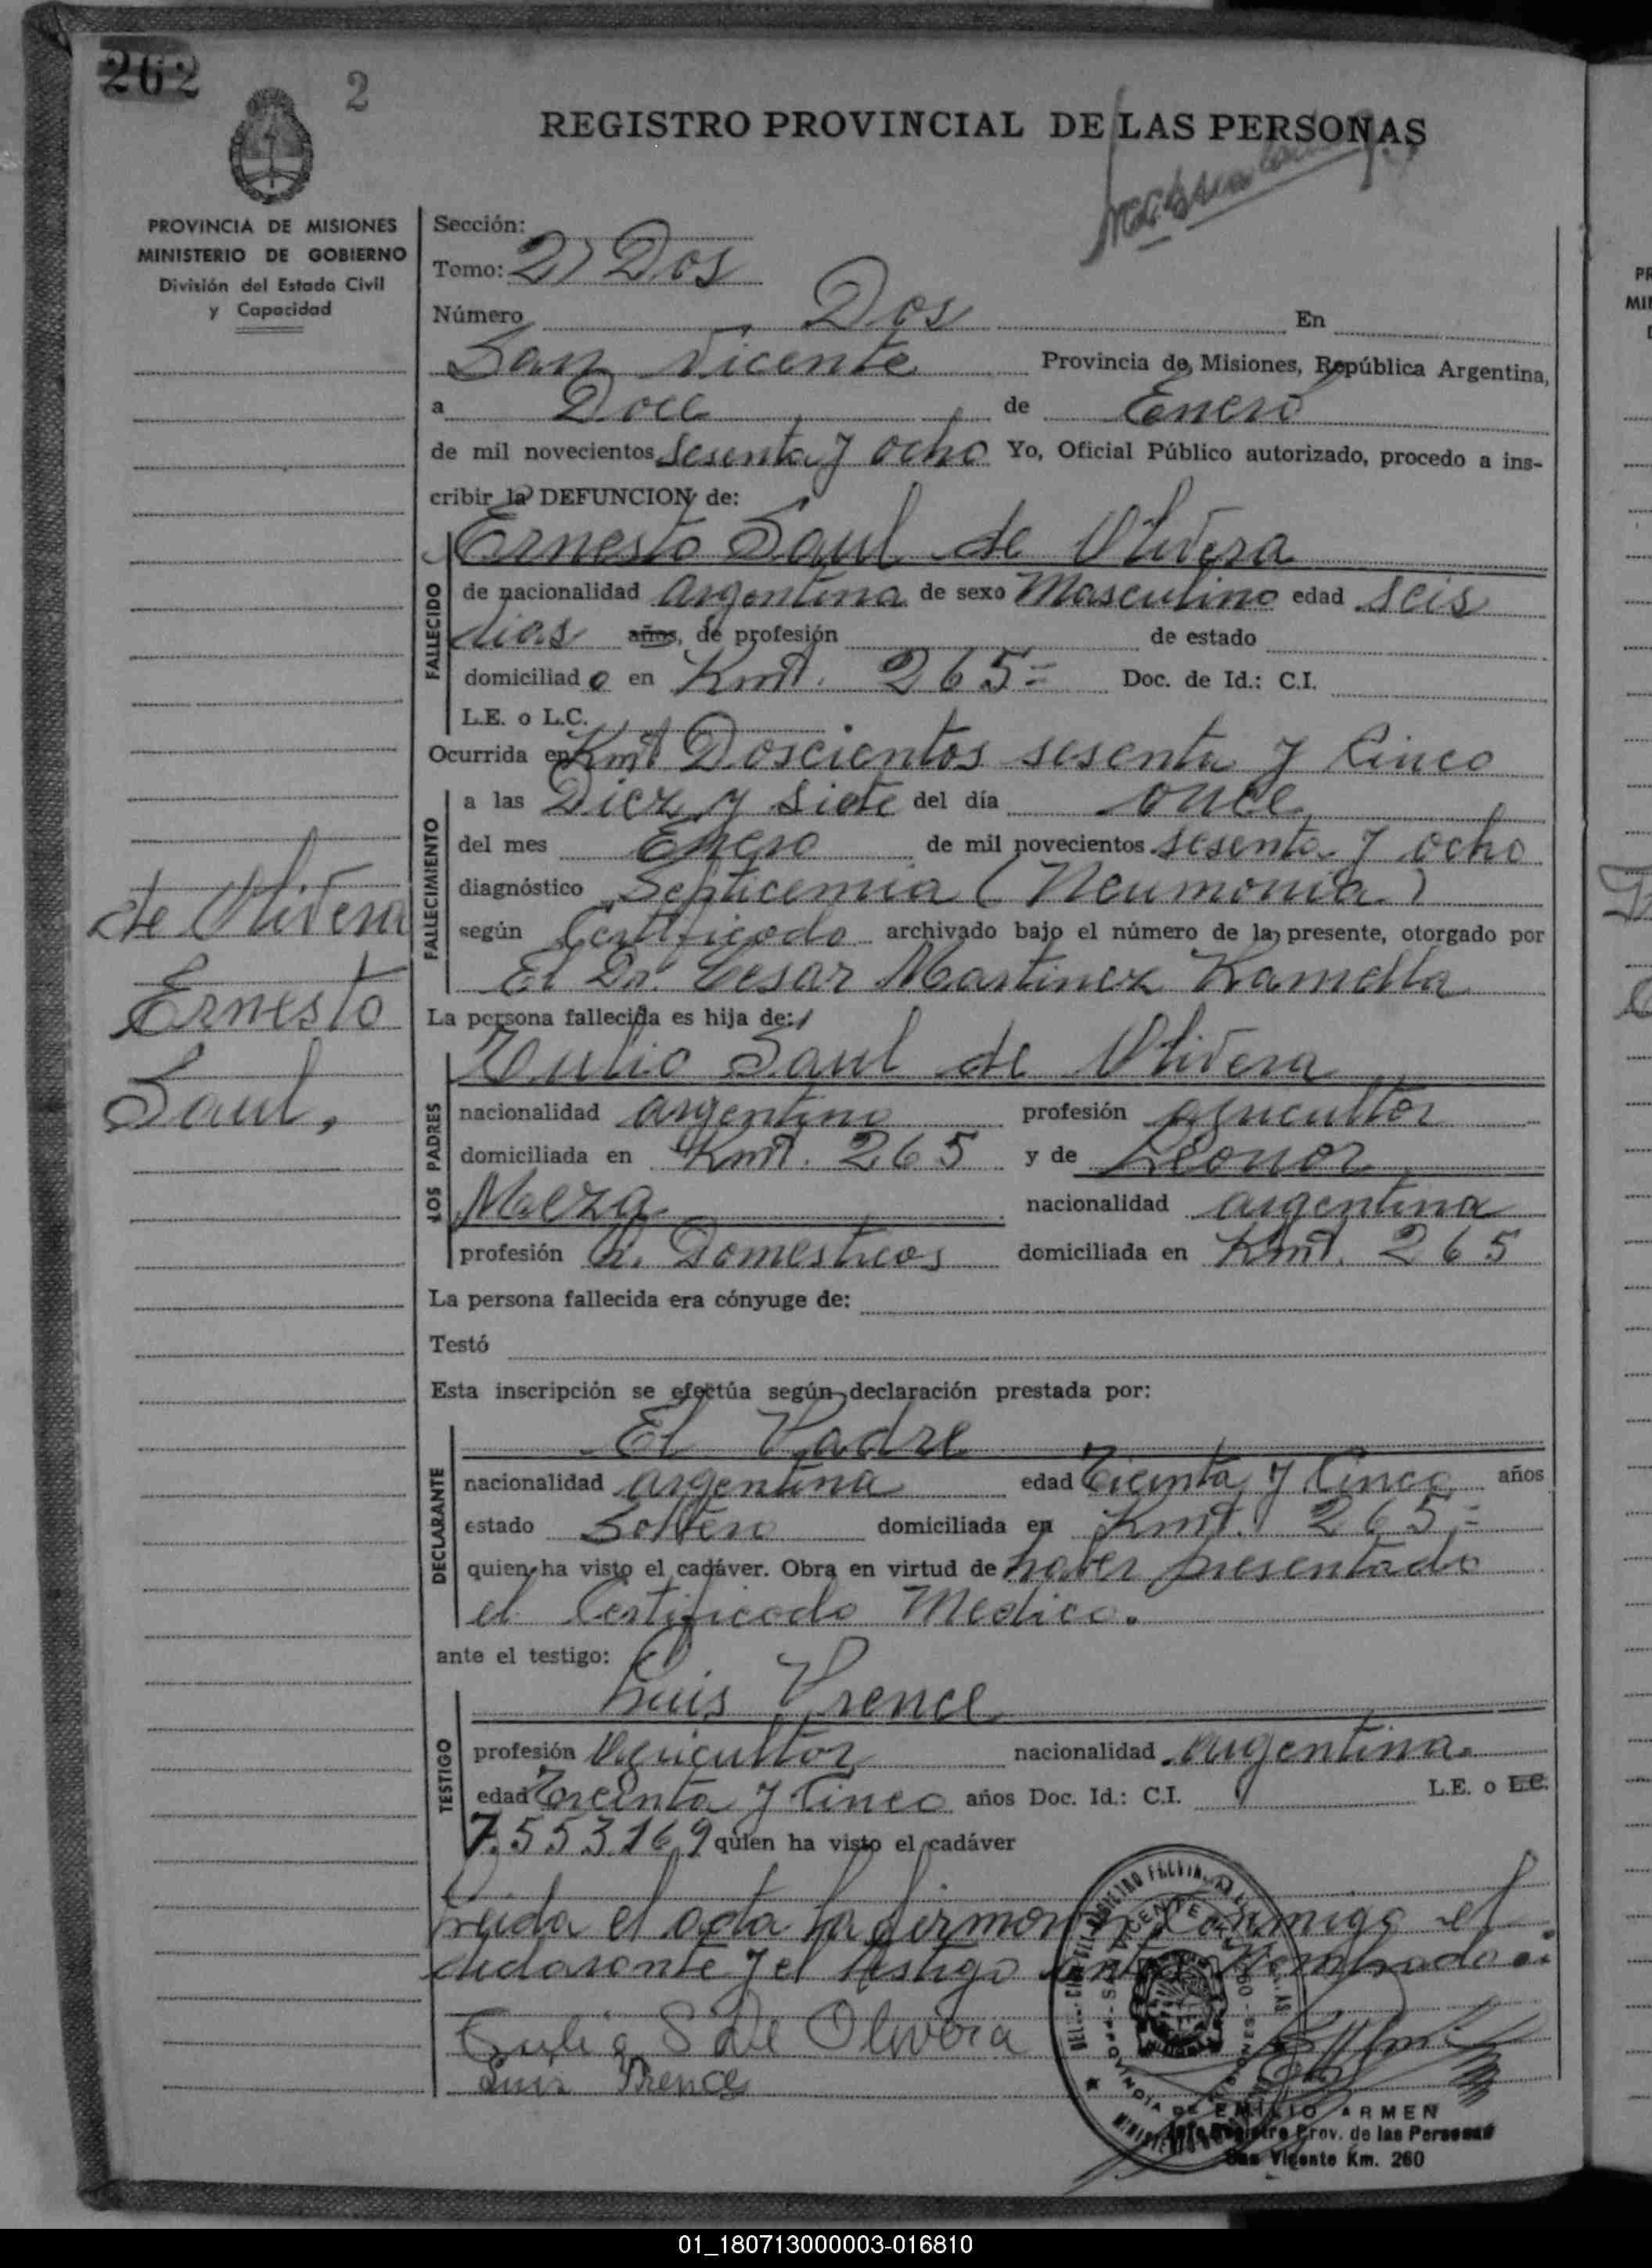 262
2
REGISTRO PROVINCIAL DE LAS PERSONAS
PROVINCIA DE MISIONES
MINISTERIO DE GOBIERNO
División del Estado Civil
y Capacidad
Sección:
Tomo: 2) Dos
Número Dos En
San Vicente Provincia de Misiones, República Argentina,
a Doce de Enero
de mil novecientos sesenta y ocho Yo, Oficial Público autorizado, procedo a ins-
cribir la DEFUNCION de:
Ernesto Saul de Olivera
FALLECIDO
de nacionalidad argentina de sexo Masculino edad seis
dias años, de profesión de estado
domiciliado en Kmt. 265= Doc. de Id.: C.I.
L.E. o L.C.
Ocurrida en Kmt Doscientos sesenta y Cinco
FALLECIMIENTO
a las Diez y Siete del día once
del mes Enero de mil novecientos sesenta y ocho
diagnóstico Septicemia (Neumonia)
según Certificado archivado bajo el número de la presente, otorgado por
El Dr. Cesar Martinez Ramella
de Olivera
Ernesto
Saul,
La persona fallecida es hija de:
Tulio Saul de Olivera
LOS PADRES
nacionalidad argentino profesión agricultor
domiciliada en Kmt. 265 y de Leonor
Meza nacionalidad argentina
profesión Q. Domesticos domiciliada en Kmt. 265
La persona fallecida era cónyuge de:
Testó
Esta inscripción se efectúa según declaración prestada por:
El Padre
DECLARANTE
nacionalidad argentina edad Treinta y Cinco años
estado Soltero domiciliada en Kmt. 265=
quien ha visto el cadáver. Obra en virtud de haber presentado
el Certificado Medico.
ante el testigo:
Luis Prence
TESTIGO
profesión Agricultor nacionalidad argentina.
edad Treinta y Cinco años Doc. Id.: C.I. L.E. o L.C.
7.553.169 quien ha visto el cadáver
Leida el acta la firman conmigo el
declarante y el testigo antes Nombrado
Tulio S de Olivera
Luis Prence
EMILIO ARMEN
Jefe Registro Prov. de las Personas
San Vicente Km. 260
01_180713000003-016810